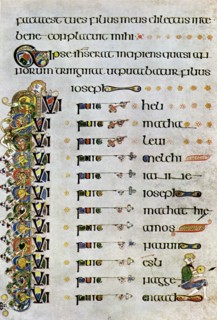 factaest tues filius meus dilectus inte
bene conplacuit mihi
Ipse ihs erat incipiens quasi an
norum triginta ut putabatur filius
ioseph
QUI fuit heli
QUI fuit matha
QUI fuit levi
QUI fuit melchi
QUI fuit
QUI fuit ioseph
QUI fuit mathathie
QUI fuit amos
QUI fuit
QUI fuit esli
QUI fuit nagge
QUI fuit maath